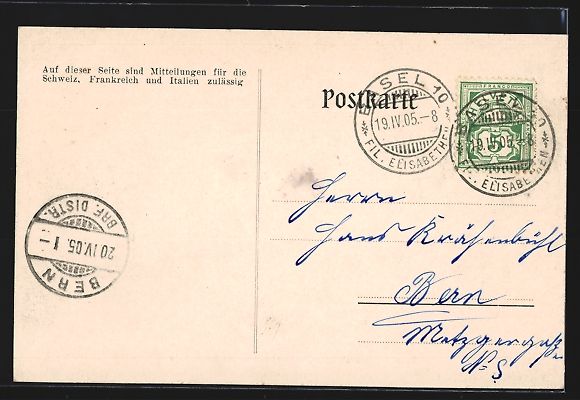 Auf dieser Seite sind Mitteilungen für die
Schweiz, Frankreich und Italien zulässig
Postkarte
BASEL 10
19.IV.05.-8
FIL. ELISABETHEN
FRANCO
BASEL 10
19.IV.05.-8
FIL. ELISABETHEN
Herrn
Hans Krähenbühl
Bern
Metzgergasse
No
BRF. DISTR.
20.IV.05. 1-
BERN